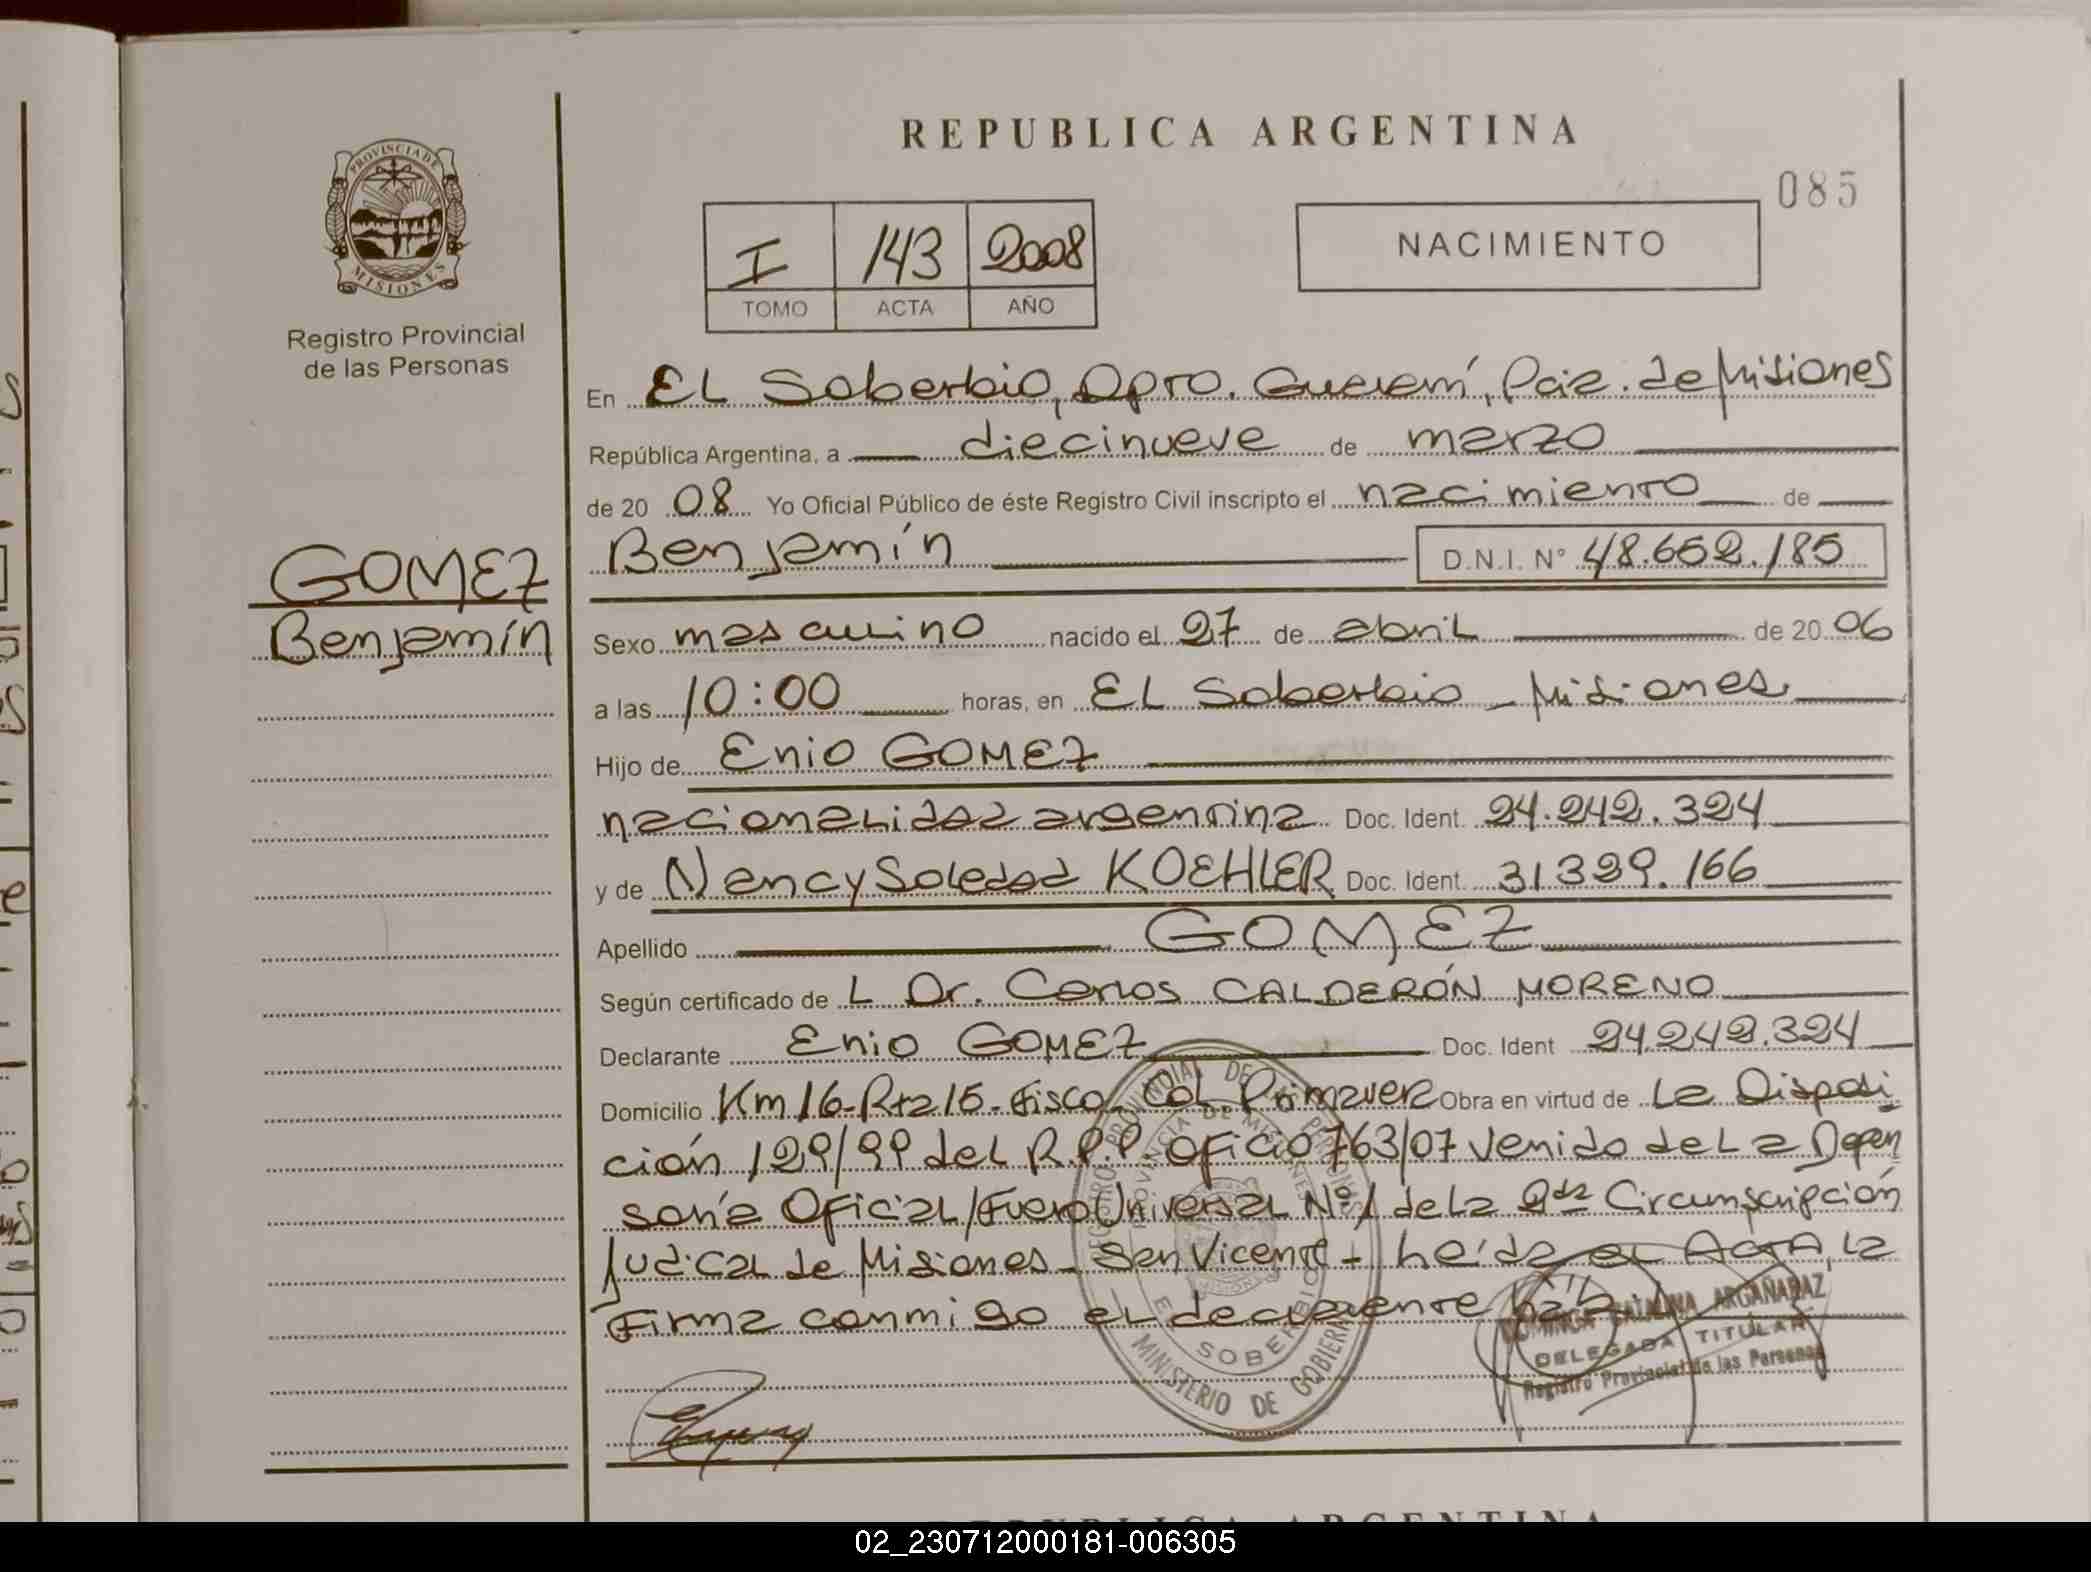 REPUBLICA ARGENTINA
085
PROVINCIA DE
MISIONES
Registro Provincial
de las Personas
I 143 2008
TOMO ACTA AÑO
NACIMIENTO
En EL Soberbio, Dpto. Guaraní, Pcia. de Misiones
República Argentina, a diecinueve de marzo
de 20 08 Yo Oficial Público de éste Registro Civil inscripto el nacimiento de
Benjamín D.N.I. Nº 48.652.185
GOMEZ
Benjamín
Sexo masculino nacido el 27 de abril de 20 06
a las 10:00 horas, en EL Soberbio - Misiones
Hijo de Enio GOMEZ
nacionalidad argentina Doc. Ident. 24.242.324
y de Nancy Soledad KOEHLER Doc. Ident. 31329.166
Apellido GOMEZ
Según certificado de L Dr. Carlos CALDERÓN MORENO
Declarante Enio GOMEZ Doc. Ident 24.242.324
Domicilio Km 16-Rta 15-Fisco Col. Primavera Obra en virtud de La Disposi
ción 129/99 del R.P.P. oficio 763/07 Venido de La Defen
soría Oficial/Fuero Universal Nº1 de La 2da Circunscripción
Judicial de Misiones - San Vicente - Leída el ACTA, La
Firma conmigo el declarente
REGISTRO PROVINCIAL DE LAS PERSONAS
PROVINCIA DE MISIONES
EL SOBERBIO
MINISTERIO DE GOBIERNO
DOMINGA CATALINA ARGAÑARAZ
DELEGADA TITULAR
Registro Provincial de las Personas
REPUBLICA ARGENTINA
02_230712000181-006305